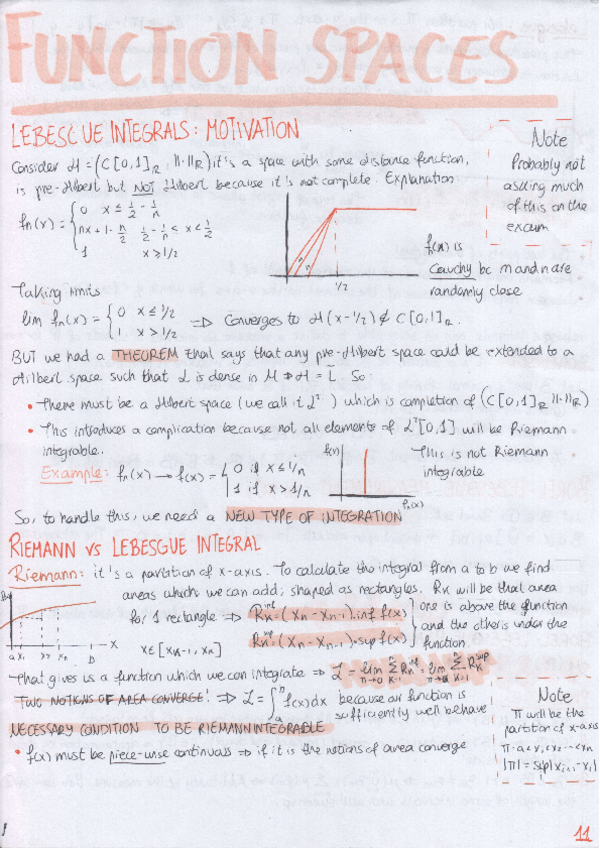 FUNCTION SPACES
LEBESGUE INTEGRALS: MOTIVATION
Consider H = (C[0,1]ℝ, ||·||ℝ) it's a space with some distance function,
is pre-Hilbert but NOT Hilbert because it's not complete. Explanation:
fn(x) = { 0 x ≤ 1/2 - 1/n
nx + 1 - n/2 1/2 - 1/n < x < 1/2
1 x > 1/2
1/2
fn(x) is
Cauchy bc m and n are
randomly close
Note
Probably not
asking much
of this on the
exam
Taking limits
lim fn(x) = { 0 x ≤ 1/2
1 x > 1/2 ⇒ Converges to H(x-1/2) ∉ C[0,1]ℝ.
BUT we had a THEOREM that says that any pre-Hilbert space could be extended to a
Hilbert space such that L is dense in H ⇒ H = L̄. So:
• There must be a Hilbert space (we call it L²) which is completion of (C[0,1]ℝ ||·||ℝ)
• This introduces a complication because not all elements of L²[0,1] will be Riemann
integrable.
Example: fn(x) → f(x) = { 0 if x ≤ 1/n
1 if x > 1/n
f(x)
fn(x)
This is not Riemann
integrable
So, to handle this, we need a NEW TYPE OF INTEGRATION
RIEMANN VS LEBESGUE INTEGRAL
Riemann: it's a partition of x-axis. To calculate the integral from a to b we find
areas which we can add, shaped as rectangles. Rk will be that area
for 1 rectangle ⇒ Rk^inf = (Xn - Xn-1) · inf f(x)
x ∈ [Xk-1, Xk] Rk^sup = (Xn - Xn-1) · sup f(x)
one is above the function
and the other is under the
function.
a x₁ b x
That gives us a function which we can integrate ⇒ L = lim n→∞ Σ k=1 Rk^sup = lim n→∞ Σ k=1 Rk^inf
TWO NOTIONS OF AREA CONVERGE! ⇒ L = ∫ f(x)dx because our function is
sufficiently well behave
NECESSARY CONDITION TO BE RIEMANN INTEGRABLE
• f(x) must be piece-wise continuous ⇒ if it is the notions of area converge
Note
Π will be the
partition of x-axis
Π = a < x₁ < x₂ ... < xn
|Π| = sup|xi+1 - xi|
11